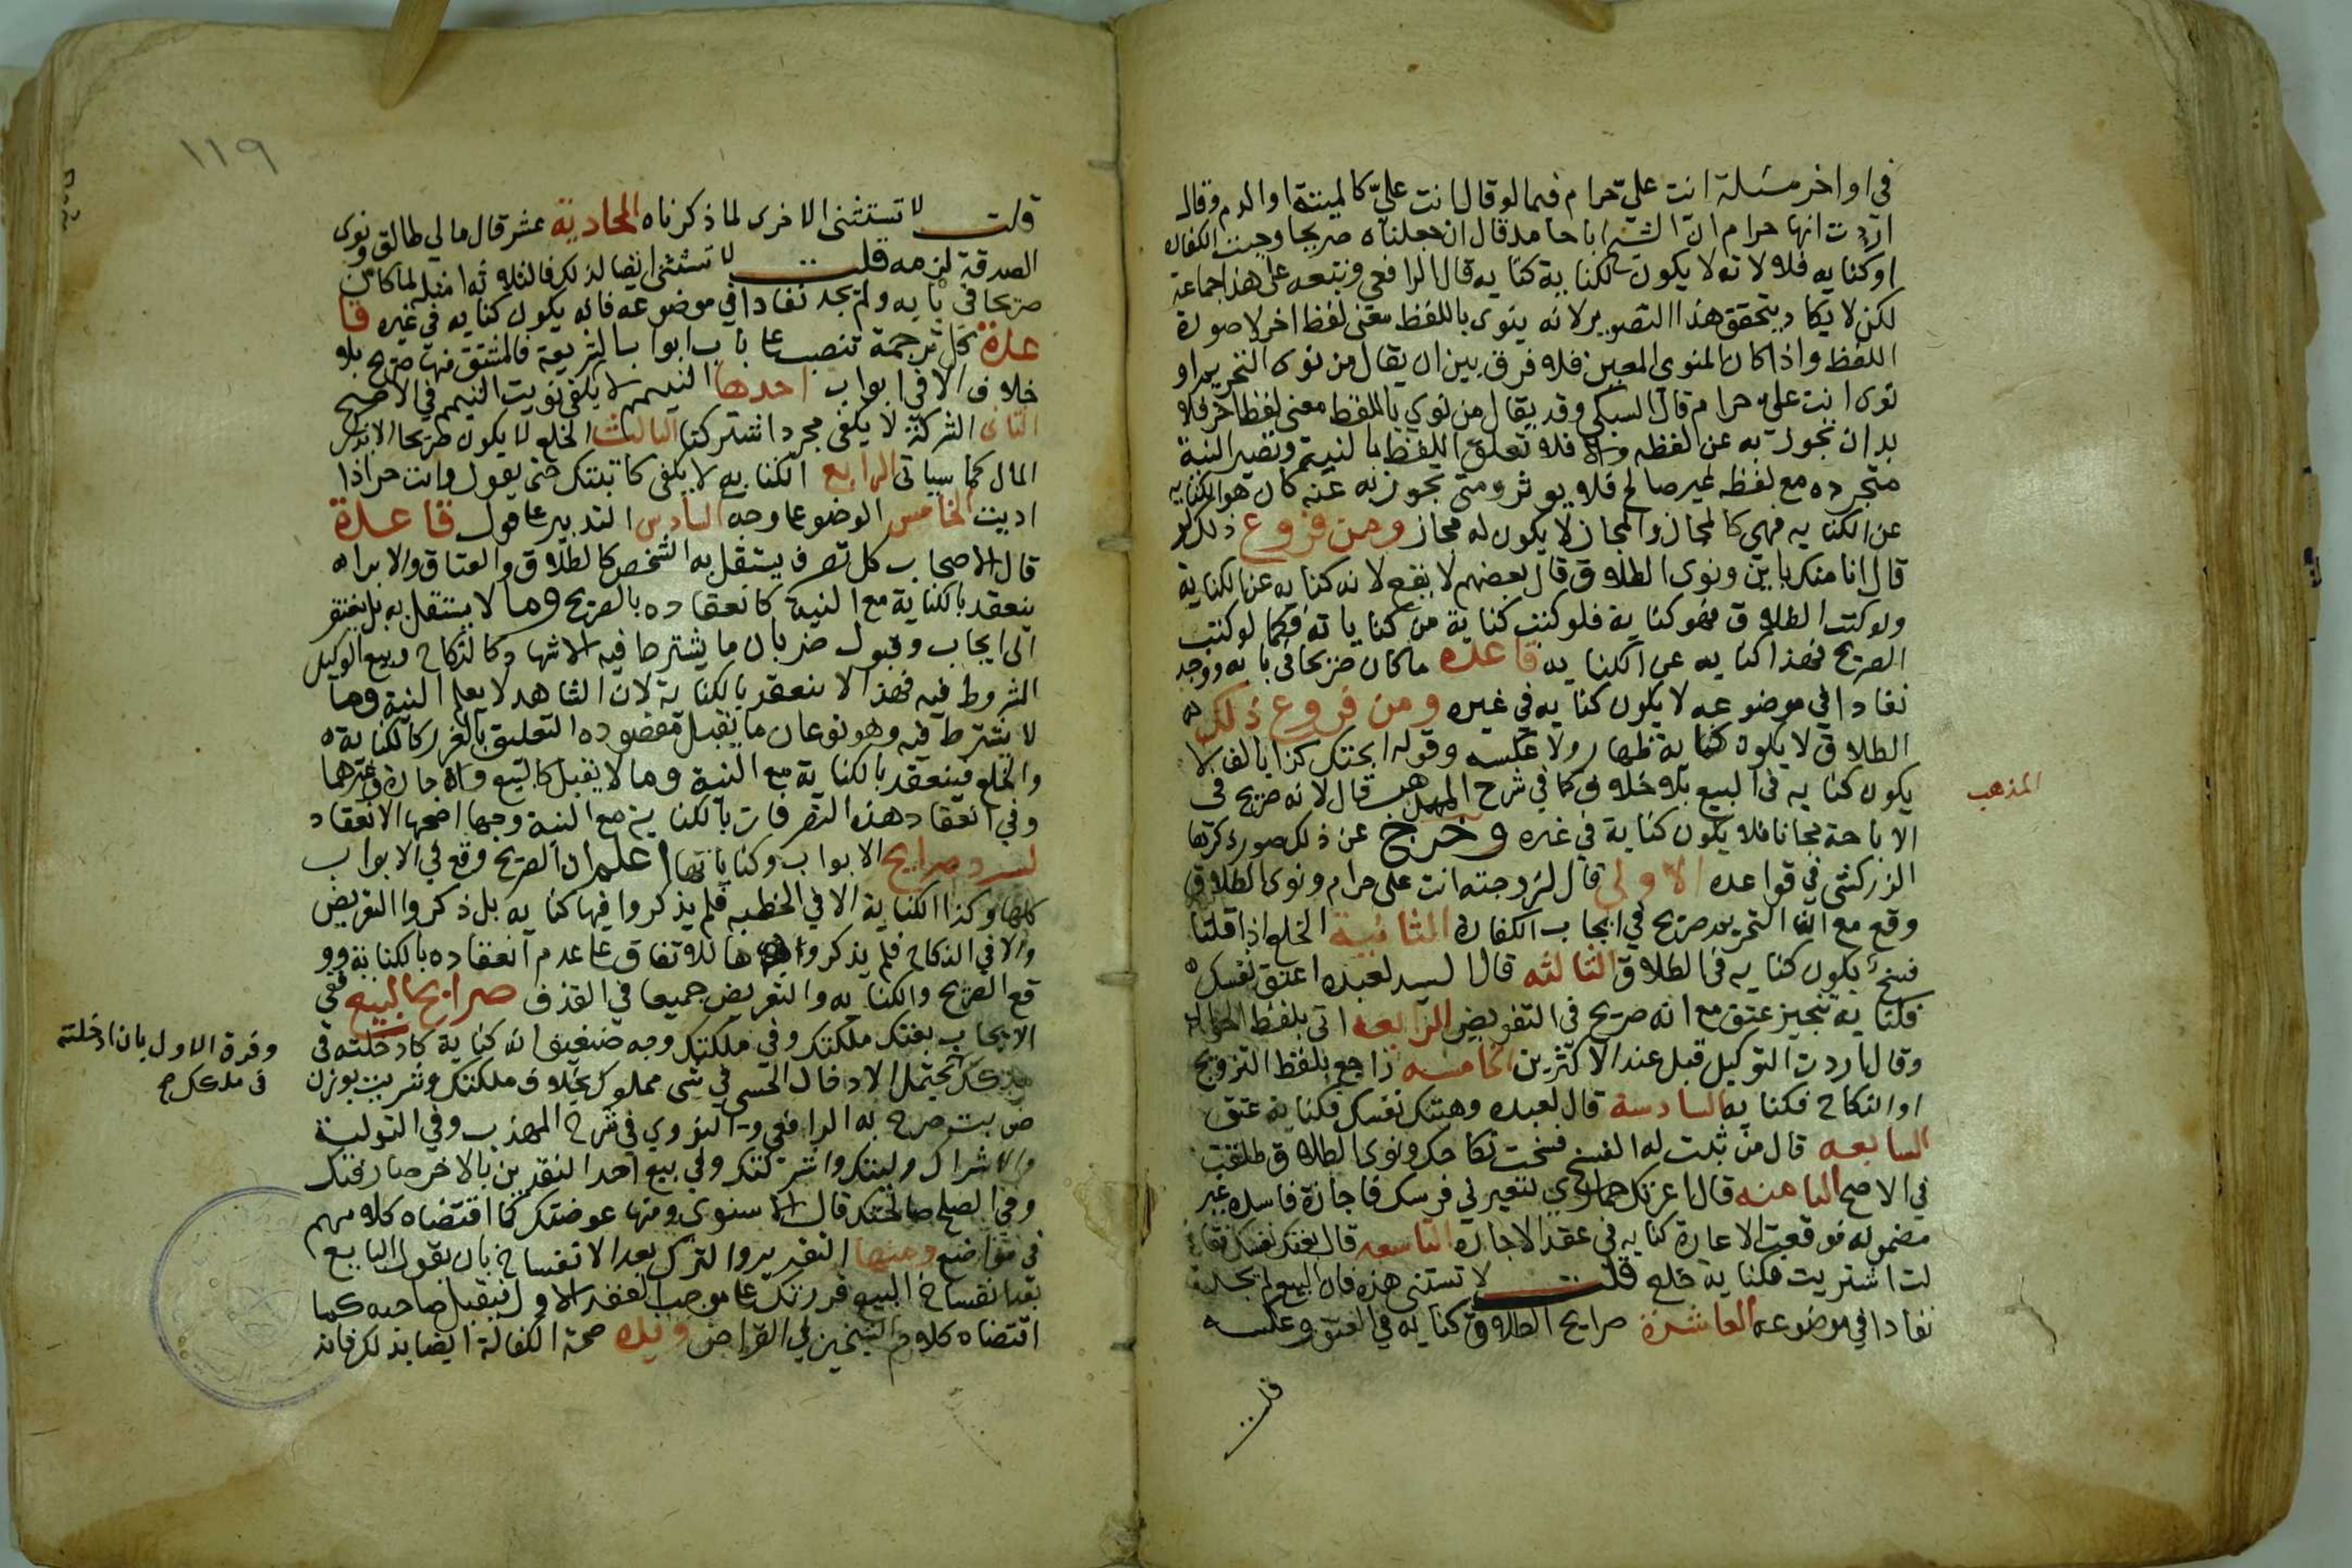 في اواخر مسئلة انت عليّ حرام فيما لو قال انت عليّ كالميتة او الدم وقال
اردت انها حرام انّ الشيخ ابا حامد قال ان جعلناه صريحا وجبت الكفارة
او كنايه فلا لانه لا يكون للكناية كنايه قال الرافعي وتبعه على هذا جماعة
لكن لا يكاد يتحقق هذا التصوير لانه ينوى باللفظ معنى لفظ اخر لا صورة
اللفظ واذا كان المنوي المعين فلا فرق بين ان يقال من نوى التحريم او
نوى انت عليّ حرام قال السبكي وقد يقال من نوي باللفظ معنى لفظ اخر فلا
بد ان تجوز به عن لفظه والا فلا تعلق للفظ بالنية وتصير النية
متجرده مع لفظ غير صالح فلا يوثر ومتى تجوز به عنه كان هو الكنايه
عن الكنايه فهي كالمجاز والمجاز لا يكون له مجاز ومن فروع ذلك لو
قال انا منك باين ونوى الطلاق قال بعضهم لا يقع لانه كنايه عن الكناية
ولو كتب الطلاق فهو كناية فلو كتب كناية من كناياته فكما لو كتب
الصريح فهذا كنايه عن الكنايه قاعده ما كان صريحا في بابه ووجد
نفاذا في موضوعه لا يكون كنايه في غيره ومن فروع ذلك
الطلاق لا يكون كناية ظهار ولا عكسه وقوله ابحتك كذا بالف لا
يكون كنايه في البيع بلا خلاف كما في شرح المهذب قال لانه صريح في
المذهب
الاباحة مجانا فلا يكون كناية في غيره وخرج عن ذلك صور ذكرها
الزركشي في قواعده الاولى قال لزوجته انت على حرام ونوى الطلاق
وقع مع ان التحريم صريح في ايجاب الكفارة الثانية الخلع اذا قلنا
فسخ يكون كنايه في الطلاق الثالثه قال السيد لعبده اعتق نفسك
فكنايه تنجيز عتق مع انه صريح في التفويض الرابعه اتى بلفظ الحوالة
وقال اردت التوكيل قبل عند الاكثرين الخامسه راجع بلفظ التزويج
او النكاح فكنايه السادسة قال لعبده وهبتك نفسك فكناية عتق
السابعه قال من ثبت له الفسخ فسخت نكاحك ونوى الطلاق طلقت
في الاصح الثامنه قال اعرتك حماري لتعيرني فرسك فاجازة فاسده غير
مضمونه فوقعت الاعارة كنايه في عقد الاجارة التاسعه قال بعتك نفسك فقا
لت اشتريت فكناية خلع قلت لا تستثنى هذه فان البيع لم يجد
نفاذا في موضوعه العاشرة صرايح الطلاق كنايه في العتق وعكسه
قلت
١١٩
قلت لا تستثنى الاخرى لما ذكرناه الحادية عشر قال مالي طالق ونوى
الصدقة لزمه قلت لا تستثنى ايضا لذلك فالثلاثه امثله لما كان
صريحا في بابه ولم يجد نفاذا في موضوعه فانه يكون كنايه في غيره قا
عدة كل ترجمة تنصب على باب من ابواب الشريعة فالمشتق منها صريح بلا
خلاف الا في ابواب احدها التيمم لا يكفي نويت التيمم في الاصح
الثاني الشركة لا يكفي مجرد اشتركنا الثالث الخلع لا يكون صريحا الا بذكر
المال كما سياتي الرابع الكتابه لا يكفي كاتبتك حتى يقول وانت حر اذا
اديت الخامس الوضو على وجه السادس التدبير على قول قاعدة
قال الاصحاب كل تصرف يستقل به الشخص كالطلاق والعتاق والابراء
ينعقد بالكناية مع النية كانعقاده بالصريح وما لا يستقل به بل يفتقر
الى ايجاب وقبول ضربان ما يشترط فيه الاشهاد كالنكاح وبيع الوكيل
المشروط فيه فهذا لا ينعقد بالكناية لان الشاهد لا يعلم النية وما
لا يشترط فيه وهو نوعان ما يقبل مقصوده التعليق بالغرر كالكتابة
والخلع فينعقد بالكناية مع النية وما لا يقبل كالبيع والاجارة وغيرهما
وفي انعقاد هذه التصرفات بالكناية مع النية وجها اصحها الانعقاد
لسرد صرايح الابواب وكناياتها اعلم ان الصريح وقع في الابواب
كلها وكذا الكناية الا في الخطبه فلم يذكروا فيها كنايه بل ذكروا التعريض
والا في النكاح فلم يذكروها للاتفاق على عدم انعقاده بالكناية وو
قع الصريح والكنايه والتعريض جميعا في القذف صرايح البيع ففي
الايجاب بعتك ملكتك وفي ملكتك وجه ضعيف انه كناية كادخلته في
وفرق الاول بان ادخلته
في ملكك ص
ملكك يحتمل الادخال الحسي في شى مملوك بخلاف ملكتك وشريت بوزن
ضربت صرح به الرافعي والنووي في شرح المهذب وفي التولية
والاشراك وليتك واشركتك وفي بيع احد النقدين بالاخر صارفتك
وفي الصلح صالحتك قال الاسنوي ومنها عوضتك كما اقتضاه كلامهم
في مواضع ومنها التقدير والترك بعد الانفساخ بان يقول البايع
بعد انفساخ البيع قررتك على موجب العقد الاول فيقبل صاحبه كما
اقتضاه كلام الشيخين في القراض وفيه صحة الكفالة ايضا بذلك فانه